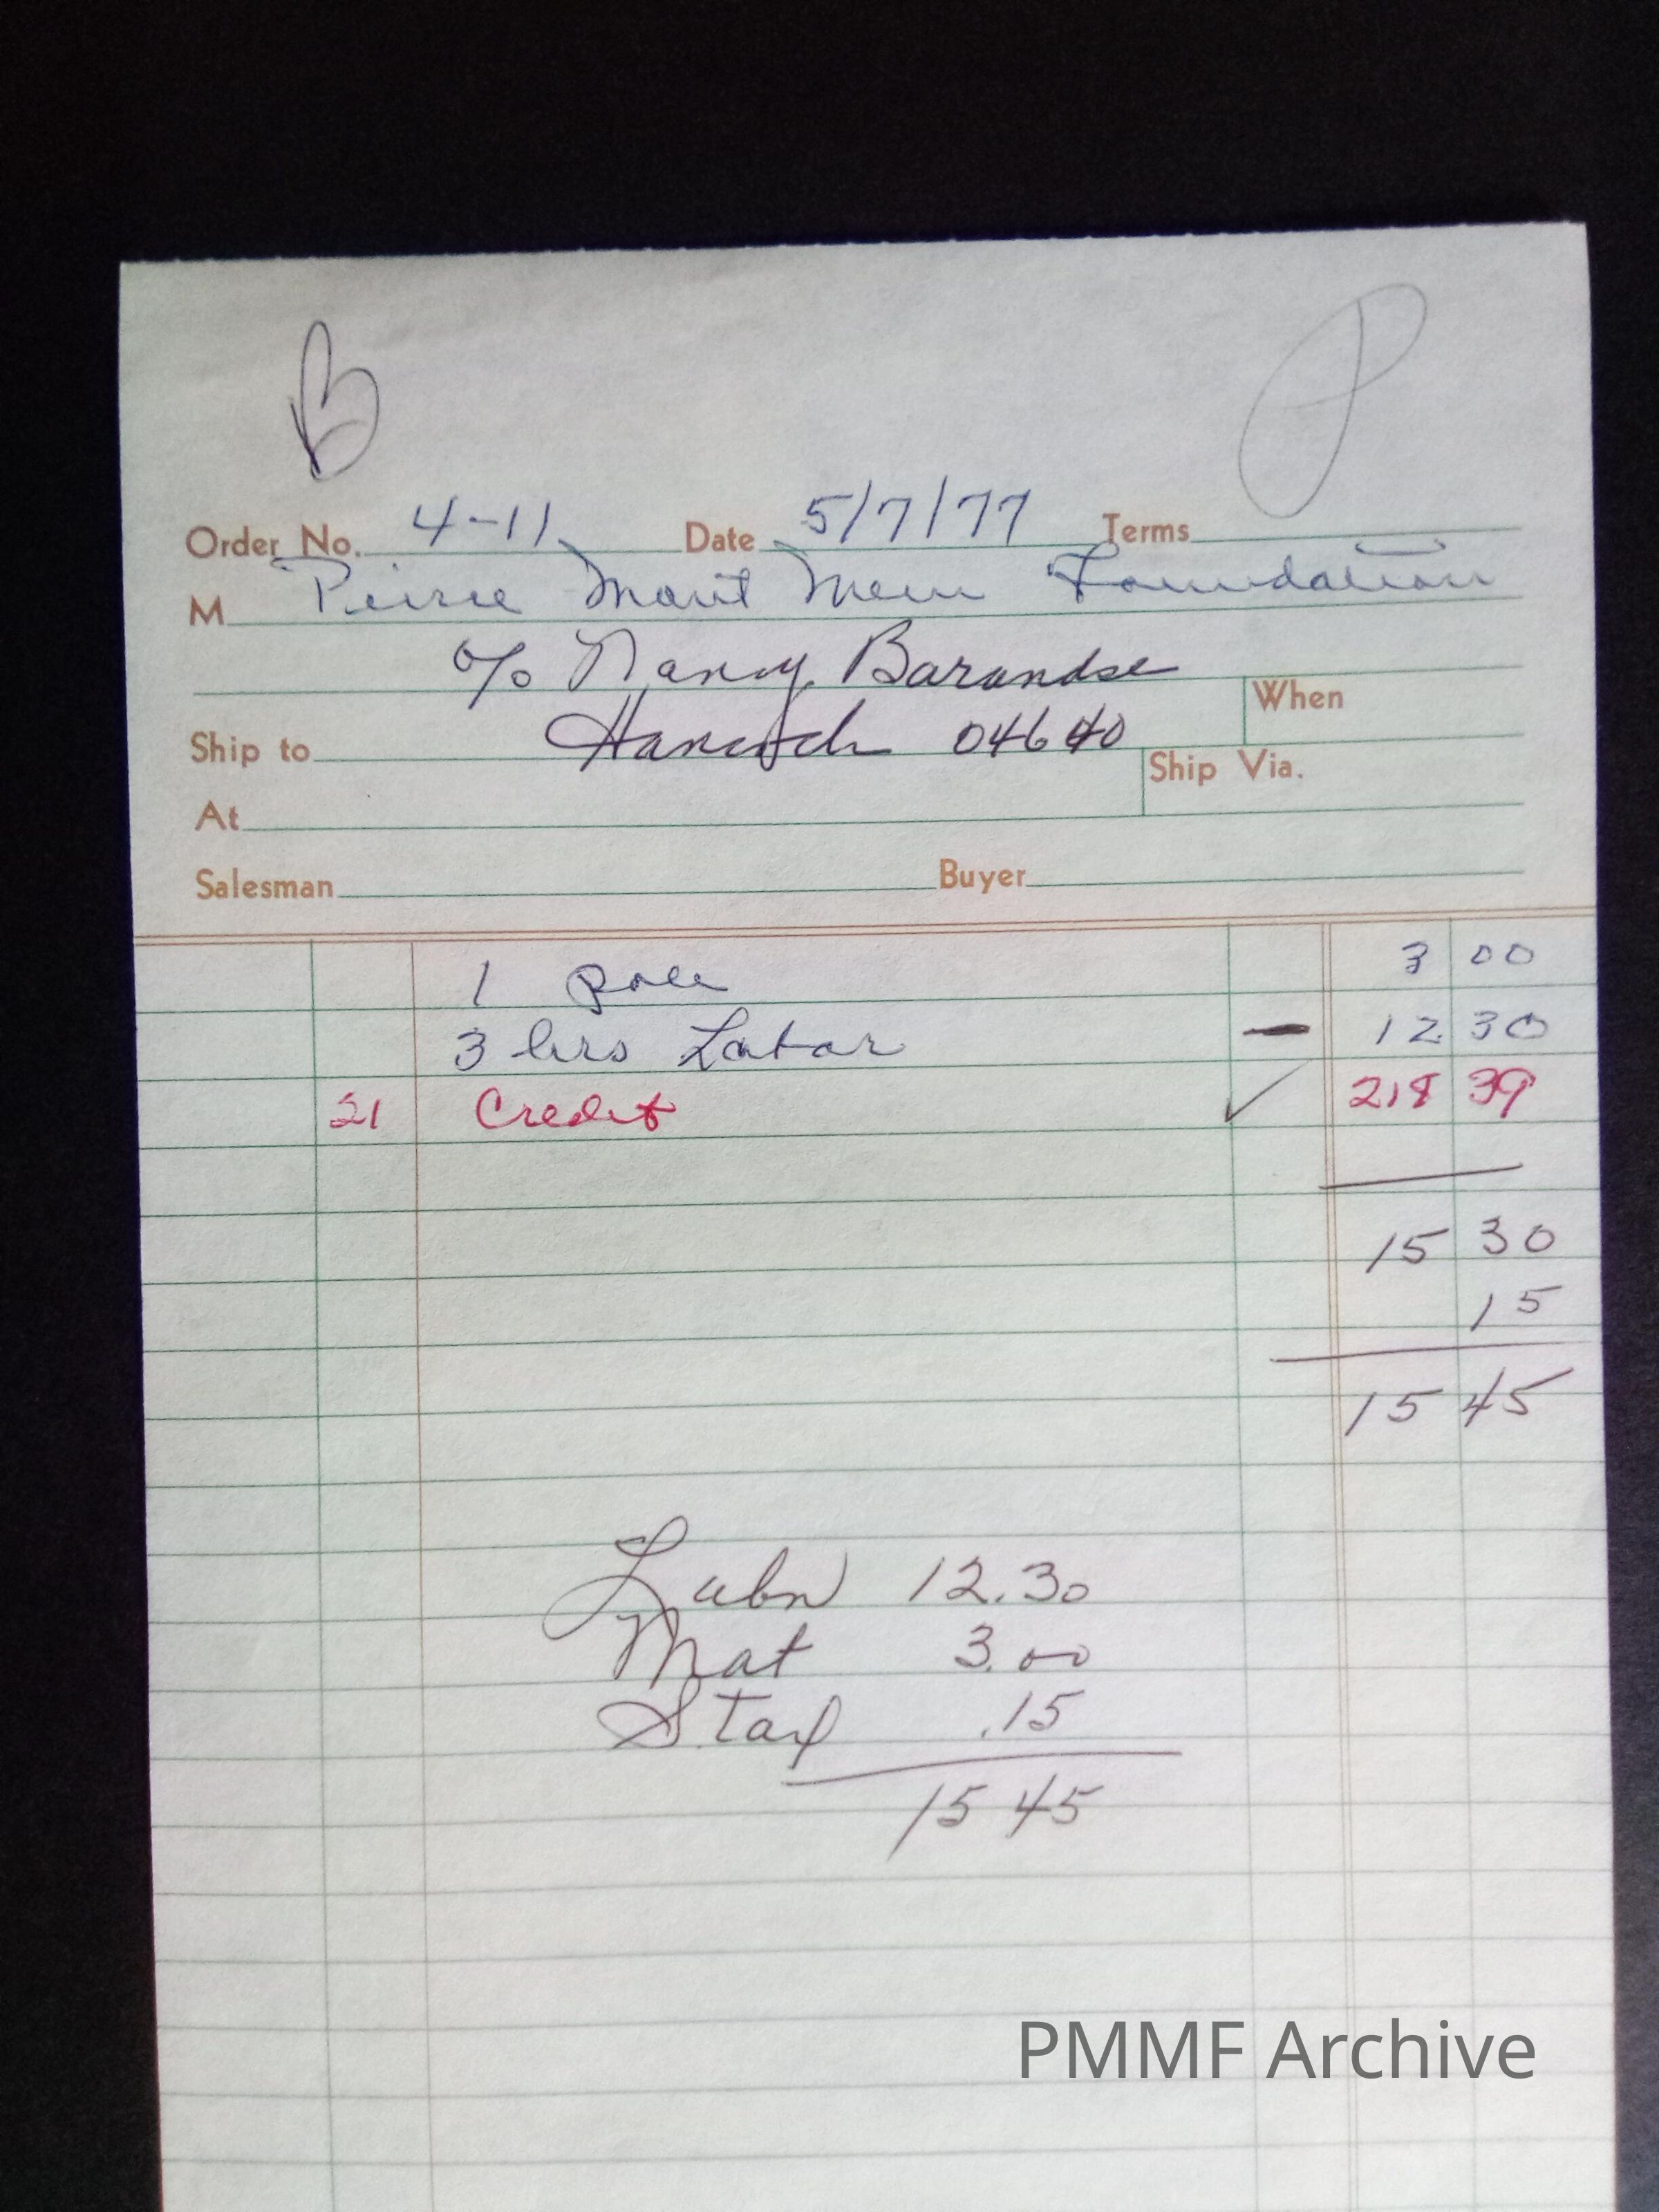 B
P
Order No. 4-11 Date 5/7/77 Terms
M Peirce Mont Mem Foundation
c/o Nancy
When
Ship to Hancock 04640
Ship Via.
At
Salesman Buyer
1 pole 3 00
3 hrs Labor — 12 30
21 Credit ✓ 218 39
15 30
15
15 45
Labor 12.30
Mat 3.00
S.Tax .15
15 45
PMMF Archive